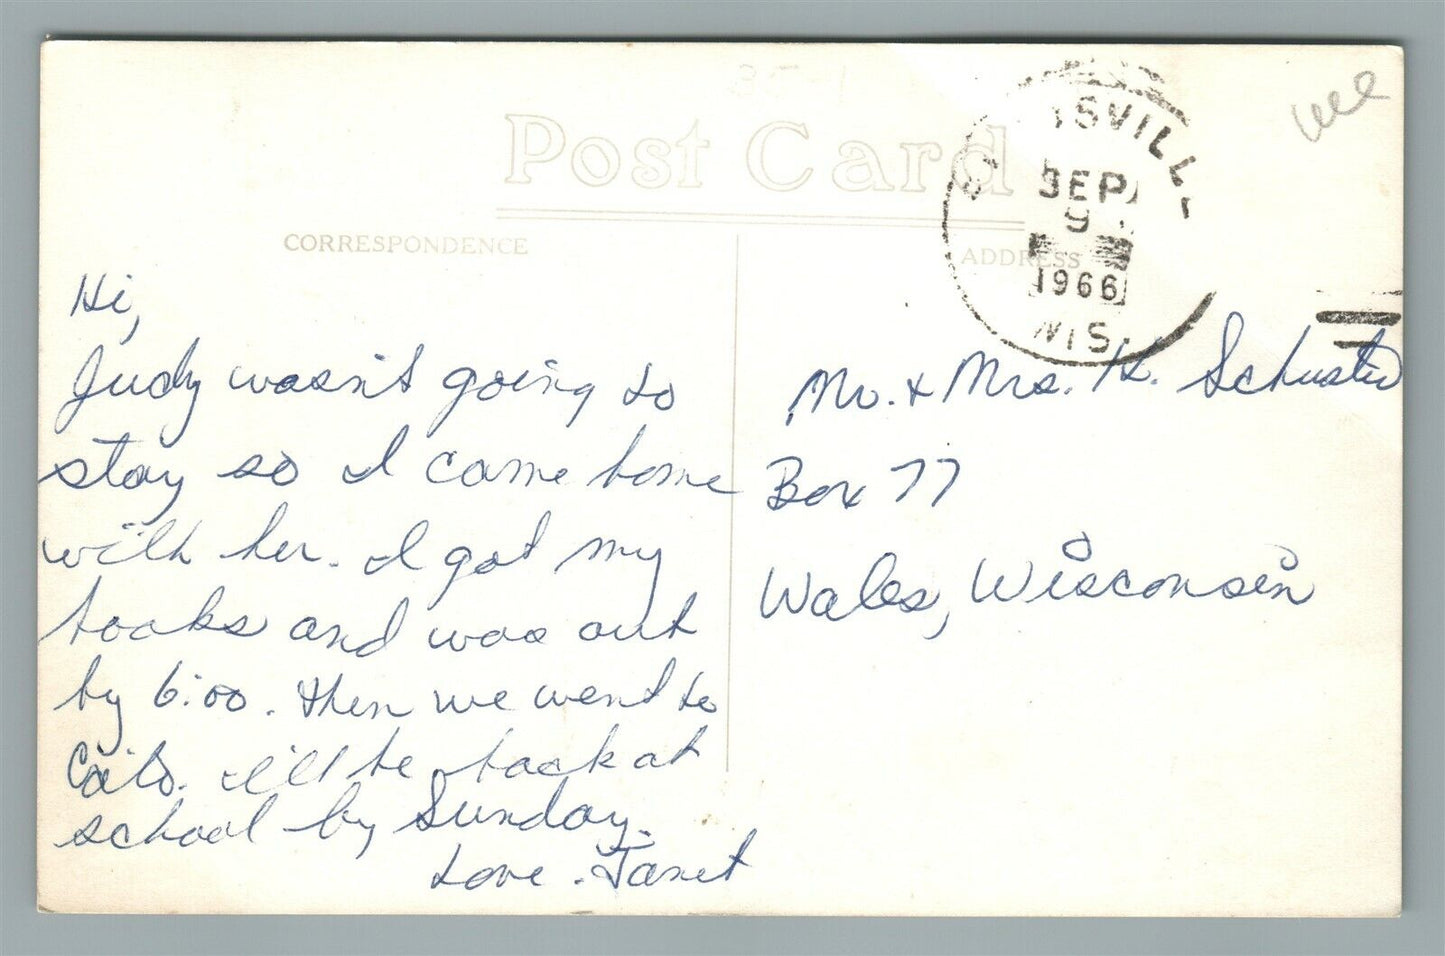 Post Card
CORRESPONDENCE
ADDRESS
SVILL
SEP
9
1966
WIS.
Hi,
Judy wasn't going to
stay so I came home
with her. I got my
books and was out
by 6:00. Then we went to
I'll be back at
school by Sunday.
Love. Janet
Mr. & Mrs. H. Schuster
Box 77
Wales, Wisconsin